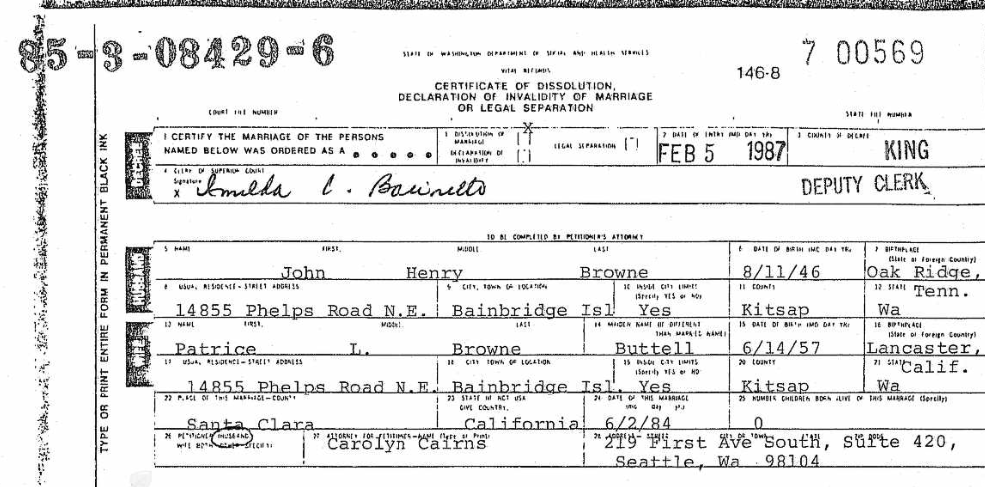 85-3-08429-6
STATE OF WASHINGTON DEPARTMENT OF SOCIAL AND HEALTH SERVICES
VITAL RECORDS
7 00569
146-8
CERTIFICATE OF DISSOLUTION,
DECLARATION OF INVALIDITY OF MARRIAGE
OR LEGAL SEPARATION
COURT FILE NUMBER
STATE FILE NUMBER
TYPE OR PRINT ENTIRE FORM IN PERMANENT BLACK INK
DECREE
I CERTIFY THE MARRIAGE OF THE PERSONS
NAMED BELOW WAS ORDERED AS A
1 DISSOLUTION OF MARRIAGE [X]
DECLARATION OF INVALIDITY [ ]
LEGAL SEPARATION [ ]
2 DATE OF ENTRY (MO DAY YR)
FEB 5 1987
3 COUNTY OF DECREE
KING
4 CLERK OF SUPERIOR COURT
Signature
X
DEPUTY CLERK
TO BE COMPLETED BY PETITIONER'S ATTORNEY
HUSBAND
5 NAME FIRST, MIDDLE LAST
John Henry Browne
6 DATE OF BIRTH (MO DAY YR)
8/11/46
7 BIRTHPLACE
(State or Foreign Country)
Oak Ridge,
Tenn.
8 USUAL RESIDENCE-STREET ADDRESS
14855 Phelps Road N.E.
9 CITY, TOWN OR LOCATION
Bainbridge Isl
10 INSIDE CITY LIMITS
(Specify YES or NO)
Yes
11 COUNTY
Kitsap
12 STATE
Wa
13 NAME FIRST, MIDDLE, LAST
Patrice L. Browne
14 MAIDEN NAME (IF DIFFERENT
THAN MARRIED NAME)
Buttell
15 DATE OF BIRTH (MO DAY YR)
6/14/57
16 BIRTHPLACE
(State or Foreign Country)
Lancaster,
Calif.
17 USUAL RESIDENCE-STREET ADDRESS
14855 Phelps Road N.E.
18 CITY TOWN OR LOCATION
Bainbridge Isl.
19 INSIDE CITY LIMITS
(Specify YES or NO
Yes
20 COUNTY
Kitsap
21 STATE
Wa
22 PLACE OF THIS MARRIAGE-COUNTY
Santa Clara
23 STATE IF NOT USA
GIVE COUNTRY,
California
24 DATE OF THIS MARRIAGE
6/2/84
25 NUMBER CHILDREN BORN ALIVE OF THIS MARRIAGE (Specify)
0
26 PETITIONER HUSBAND
WIFE BOTH
27 ATTORNEY FOR PETITIONER-NAME (Type or Print)
Carolyn Cairns
28 ADDRESS-
219 First Ave South, Suite 420,
Seattle, Wa 98104